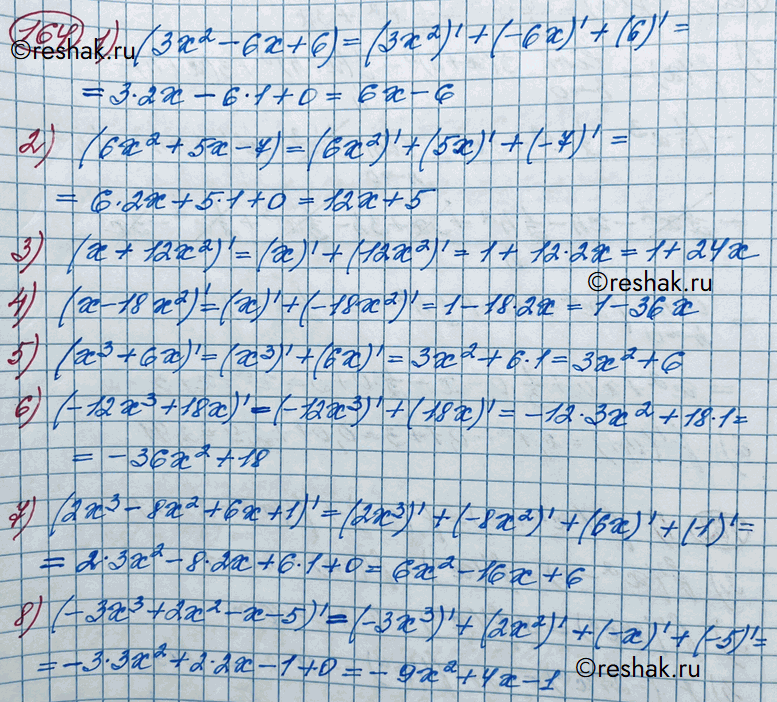 164 1) (3x² - 6x + 6) = (3x²)' + (-6x)' + (6)' =
©reshak.ru
= 3·2x - 6·1 + 0 = 6x - 6
2) (6x² + 5x - 7) = (6x²)' + (5x)' + (-7)' =
= 6·2x + 5·1 + 0 = 12x + 5
3) (x + 12x²)' = (x)' + (12x²)' = 1 + 12·2x = 1 + 24x
©reshak.ru
4) (x - 18x²)' = (x)' + (-18x²)' = 1 - 18·2x = 1 - 36x
5) (x³ + 6x)' = (x³)' + (6x)' = 3x² + 6·1 = 3x² + 6
6) (-12x³ + 18x)' = (-12x³)' + (18x)' = -12·3x² + 18·1 =
= -36x² + 18
7) (2x³ - 8x² + 6x + 1)' = (2x³)' + (-8x²)' + (6x)' + (-1)' =
= 2·3x² - 8·2x + 6·1 + 0 = 6x² - 16x + 6
8) (-3x³ + 2x² - x - 5)' = (-3x³)' + (2x²)' + (-x)' + (-5)' =
= -3·3x² + 2·2x - 1 + 0 = -9x² + 4x - 1
©reshak.ru